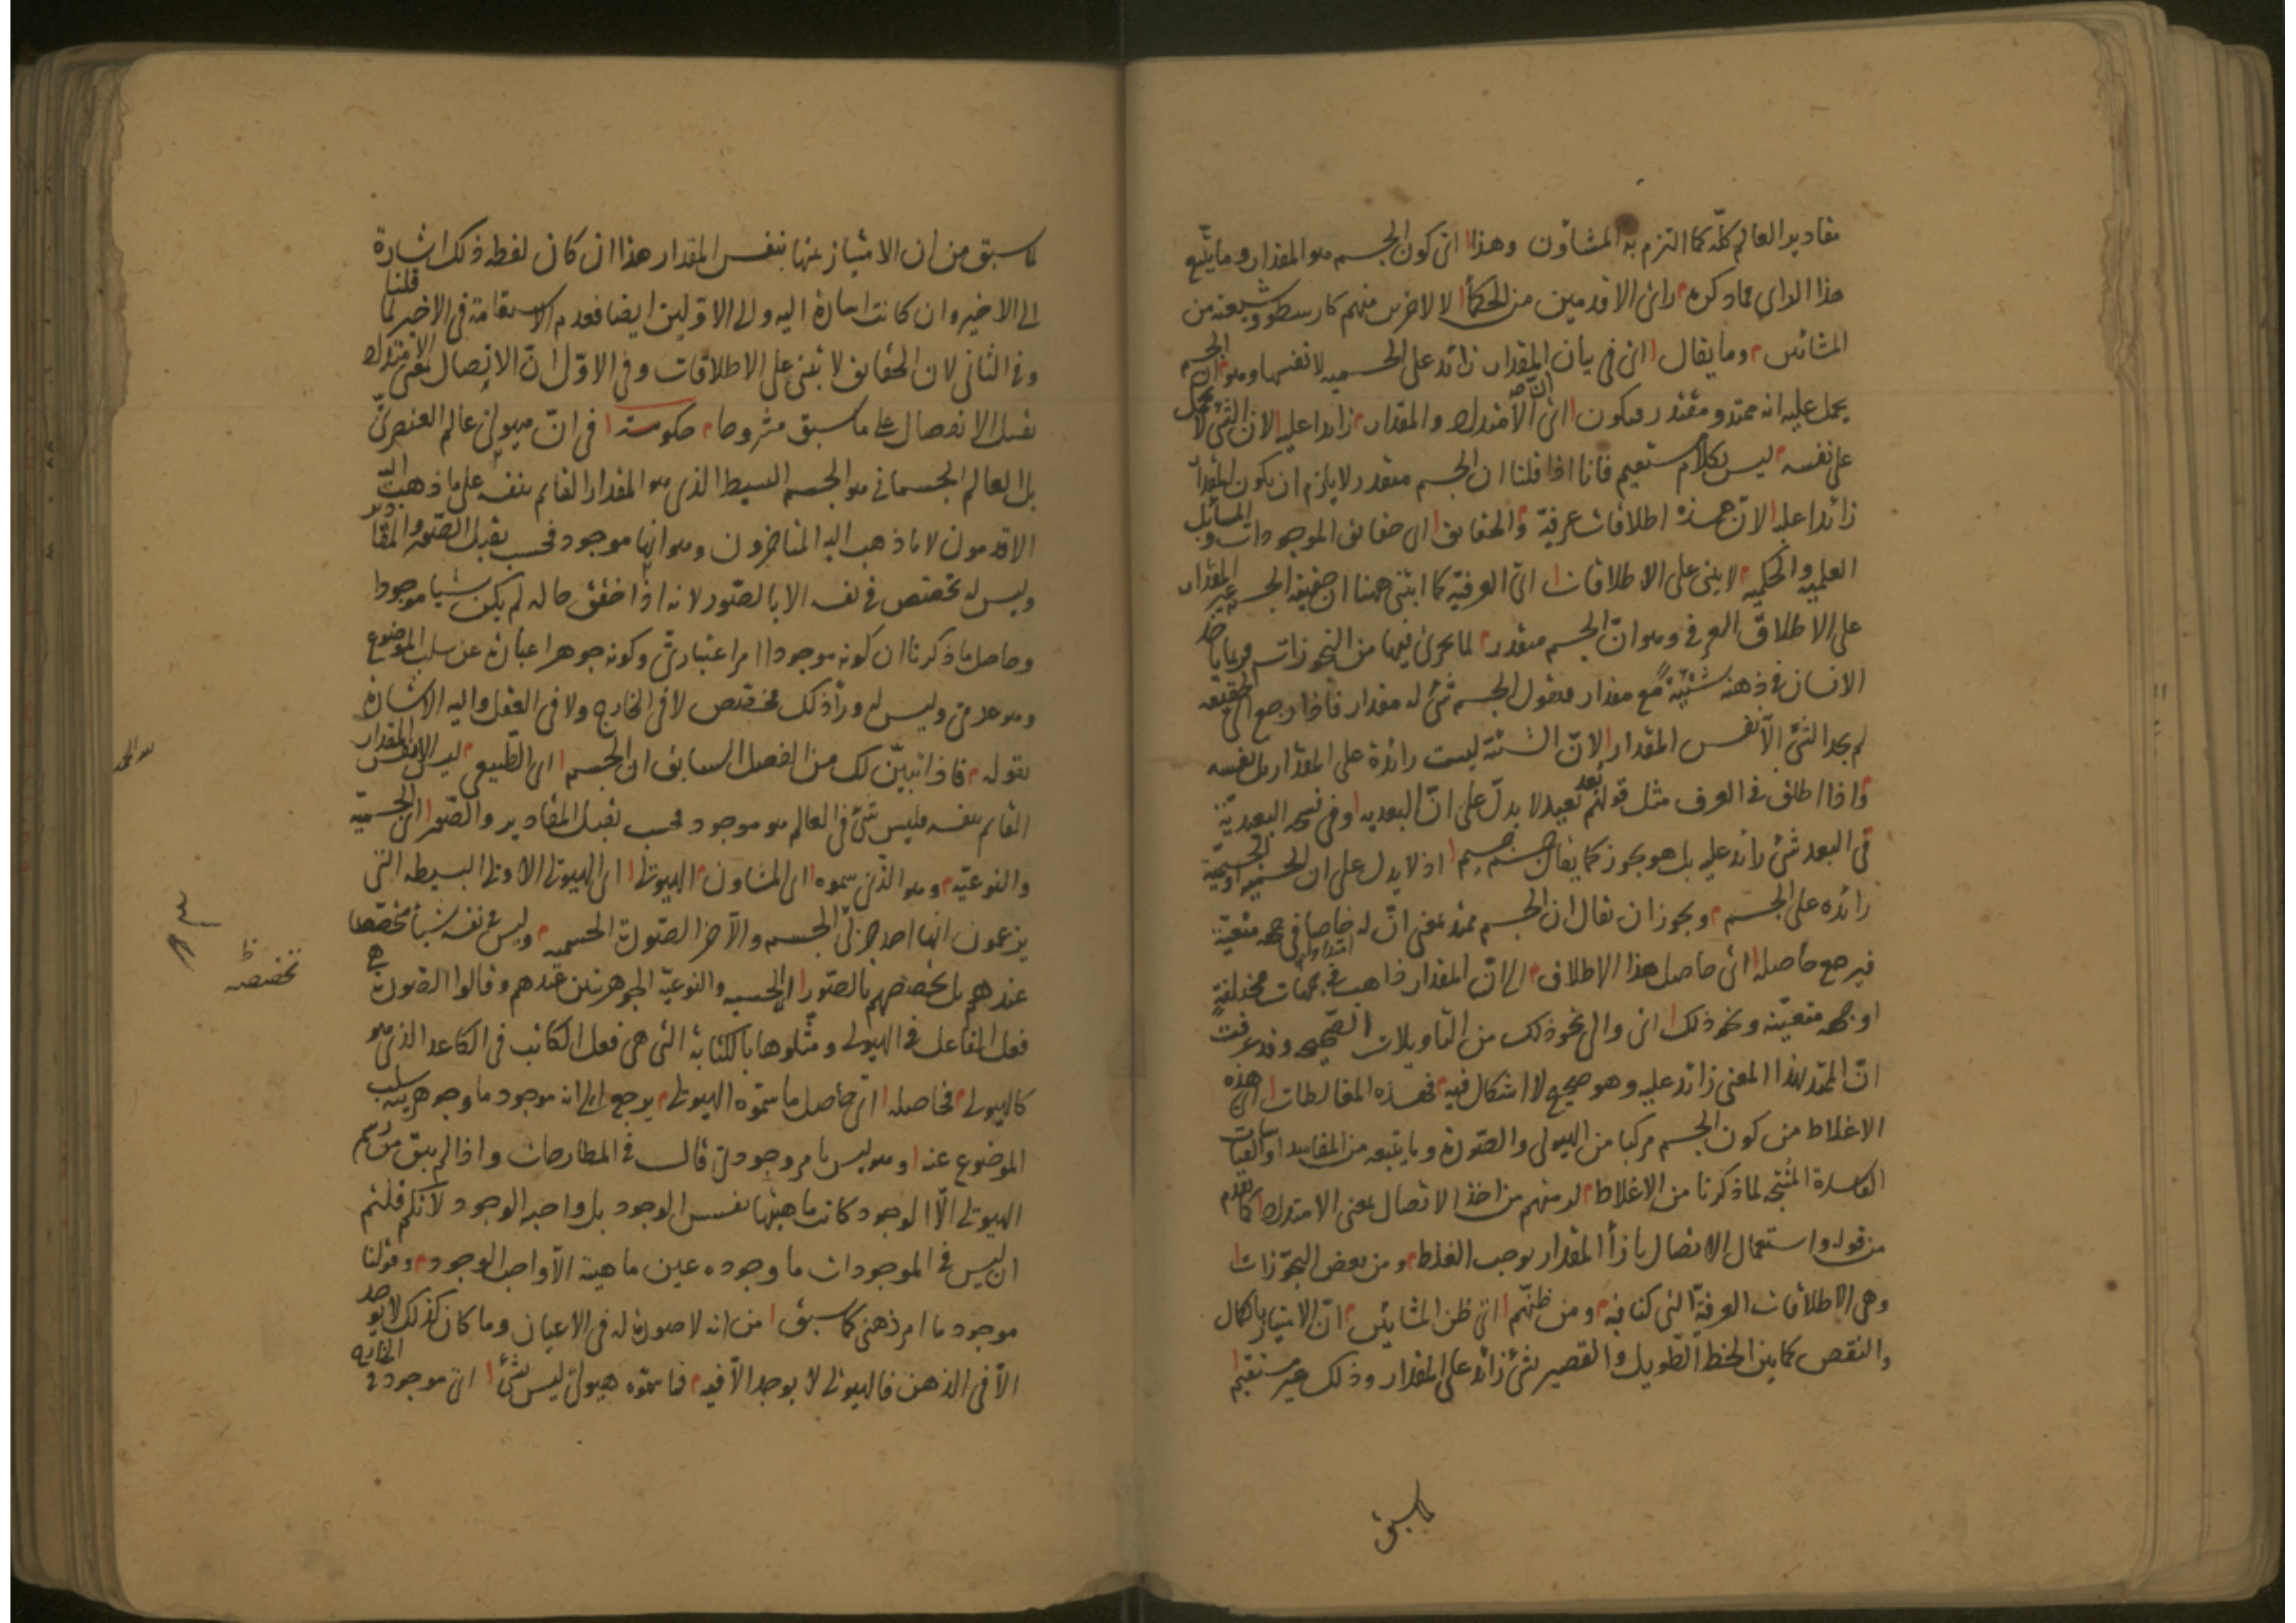 مقادير العالم كلّه كما التزم به المشاؤن وهذا اى كون الجسم هو المقدار وما يتبع
هذا الراى مما ذكره راى الاقدمين من الحكمأ لا الاخرين منهم كارسطو وشيعته من
المشائين وما يقال اى فى بيان ان المقدار زائد على الجسمية لا نفسها وهو ان الجسم
يحمل عليه انه ممتد ومتقدر فيكون اى الامتداد والمقدار زائدا عليه لان الشئ لا يحمل
على نفسه ليس بكلام مستقيم فانا اذا قلنا ان الجسم متقدر لا يلزم ان يكون المقدار
زائدا عليه لان هذه اطلاقات عرفية والحقايق اى حقايق الموجودات والمسائل
العلمية والحكمية لا يبنى على الاطلاقات اى العرفية كما ابتنى ههنا ان حقيقة الجسم غير المقدار
على الاطلاق العرفى وهو انّ الجسم متقدر لما يجرى فيها من التجوزات فربما ياخذ
الانسان فى ذهنه شيئية مع مقدار فيقول الجسم شئ له مقدار فاذا رجع الى الحقيقة
لم يجد الشئ الّا نفس المقدار لانّ الشيئية ليست زائدة على المقدار بل نفسه
واذا اطلق فى العرف مثل قولهم بُعد بعيد لا يدلّ على انّ البعدية
فى البعد شئ زائد عليه بل هو تجوز كما يقال جسم جسيم اذ لا يدل على ان الجسمية
زائده على الجسم ويجوز ان يقال ان الجسم ممتد بمعنى انّ له امتدادا خاصا فى جهة متعينة
فيرجع حاصله اى حاصل هذا الاطلاق الى انّ المقدار ذاهب فى جهات مختلفة
او جهة متعينة ونحو ذلك اى والى نحو ذلك من التاويلات الصحيحه وقد عرفت
انّ الممتد بهذا المعنى زائد عليه وهو صحيح لا اشكال فيه فهذه المغالطات اى هذه
الاغلاط من كون الجسم مركبا من الهيولى والصورة وما يتبعه من المفاسد او القياسات
الفاسدة المُنتجة لما ذكرنا من الاغلاط لزمتهم من اخذ الاتصال بمعنى الامتداد كما تقدم
من قوله واستعمال الاتصال بازأ المقدار يوجب الغلط ومن بعض التجوّزات
وهى الاطلاقات العرفيّة التى كنا فيه ومن ظنّهم اى ظن المشائين انّ الامتياز بالكمال
والنقص كما بين الخط الطويل والقصير بشئ زائد على المقدار وذلك غير مستقيم
لما سبق
لما سبق من ان الامتياز بينها بنفس المقدار هذا ان كان لفظه ذلك اشارة
الى الاخير وان كانت اشارة اليه والى الاوّلين ايضا فعدم الاستقامة فى الاخير لما قلنا
وفى الثانى لان الحقايق لا تبنى على الاطلاقات وفى الاوّل انّ الاتصال بمعنى الامتداد
يقبل الانفصال على ما سبق مشروحا حكومة فى انّ هيولى عالم العنصرىّ
بل العالم الجسمانى هو الجسم البسيط الذى هو المقدار القائم بنفسه على ما ذهبت اليه
الاقدمون لا ما ذهب اليه المتاخرون وهو انها موجود فحسب يقبل الصّور والمقادير
وليس له تخصّص فى نفسه الا بالصّور لانه اذا حقق حاله لم يكن شيئا موجودا
وحاصل ما ذكرنا ان كونه موجودا امر اعتبارىّ وكونه جوهرا عبارة عن سلب الموضوع
وهو عدمى وليس له ورأ ذلك مخصّص لا فى الخارج ولا فى العقل واليه الاشارة
بقوله فاذا تبيّن لك من الفصل السابق ان الجسم اى الطّبيعى ليس الا نفس المقدار
القائم بنفسه فليس شئ فى العالم هو موجود فحسب يقبل المقادير والصّور اى الجسميّة
والنوعيّه وهو الذى سموه اى المشاون الهيولى اى الهيولى الاولى البسيطه التى
يزعمون انها احد جزئى الجسم والآخر الصّورة الجسميه وليس فى نفسه شيأ مخصّصا
عندهم بل تخصصهم بالصّور اى الجسميه والنوعيّة الجوهريتين عندهم وقالوا الصّورة هى
فعل الفاعل فى الهيولى ومثلوها بالكتابة التى هى فعل الكاتب فى الكاغد الذى هو
كالهيولى فحاصله اى حاصل ما سمّوه الهيولى يرجع الى انه موجود ما وجوهريته سلب
الموضوع عنه وموجود ليس بامر وجودى قال فى المطارحات واذا لم يبق من رسم
الهيولى الّا الوجود كانت ماهيتها نفس الوجود بل واجبه الوجود لانكم قلتم
ان ليس فى الموجودات ما وجوده عين ماهيته الّا واجب الوجود وقولنا
موجود ما امر ذهنى كما سبق من انه لا صورة له فى الاعيان وما كان كذلك لا يوجد
الّا فى الذهن فالهيولى لا يوجد الّا فيه فما سمّوه هيولى ليس بشئ اى موجود فى الخارج
تخصصه ظ